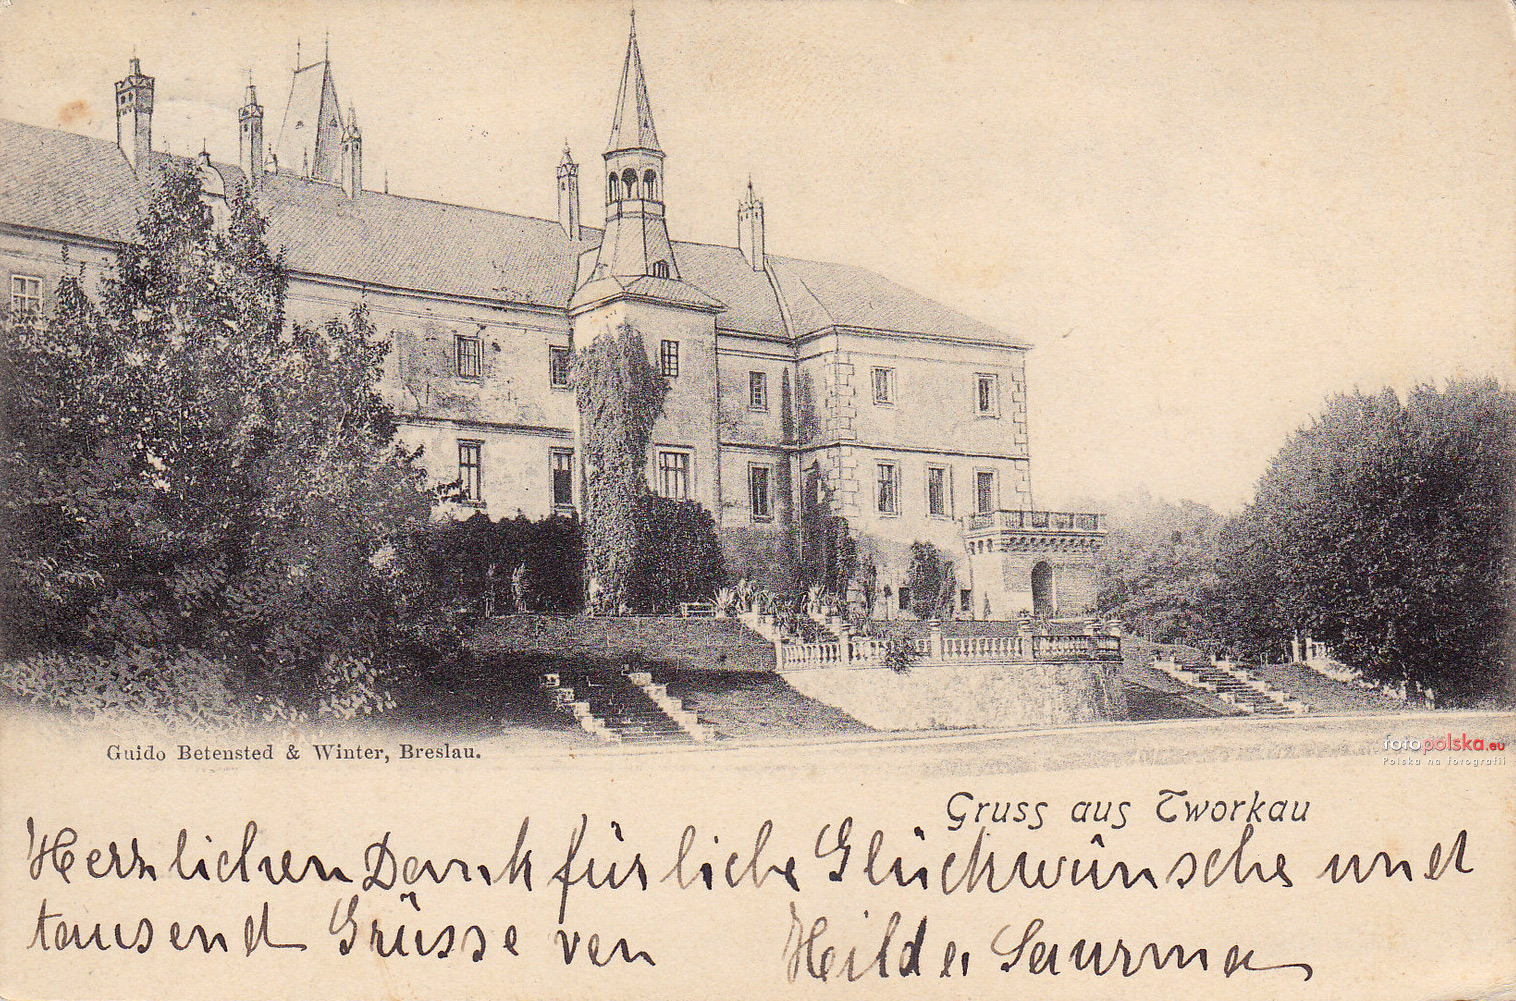 Guido Betensted & Winter, Breslau.
fotopolska.eu
Polska na fotografii
Gruss aus Tworkau
Herzlichen Dank für liebe Glückwünsche und
tausend Grüsse von Hilde Saurma